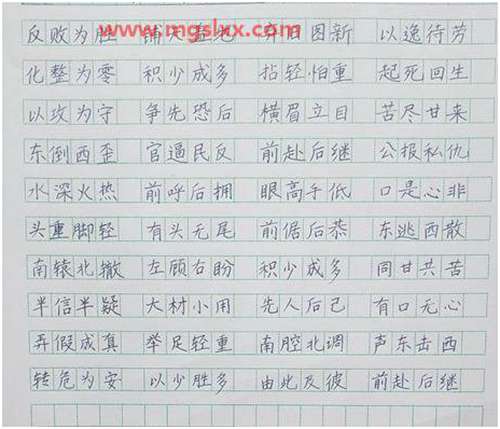 www.mgslxx.com
反败为胜 铺天盖地 弃旧图新 以逸待劳
化整为零 积少成多 拈轻怕重 起死回生
以攻为守 争先恐后 横眉立目 苦尽甘来
东倒西歪 官逼民反 前赴后继 公报私仇
水深火热 前呼后拥 眼高手低 口是心非
头重脚轻 有头无尾 前倨后恭 东逃西散
南辕北辙 左顾右盼 积少成多 同甘共苦
半信半疑 大材小用 先人后己 有口无心
弄假成真 举足轻重 南腔北调 声东击西
转危为安 以少胜多 由此及彼 前赴后继